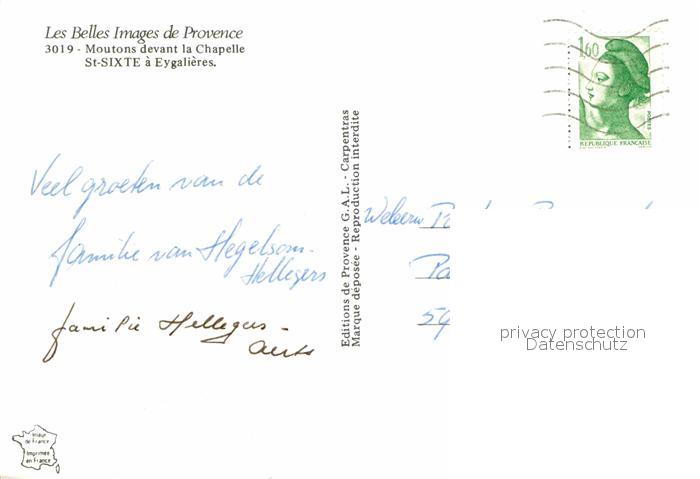 Les Belles Images de Provence
3019 - Moutons devant la Chapelle
St-SIXTE à Eygalières.
1,60
POSTES
REPUBLIQUE FRANCAISE
Editions de Provence G.A.L. - Carpentras
Marque déposée - Reproduction interdite
Veel groeten van de
familie van Hegelsom-
Hellegers
familie Hellegers -
Aerts
Pa
59
privacy protection
Datenschutz
Imprimée
en France